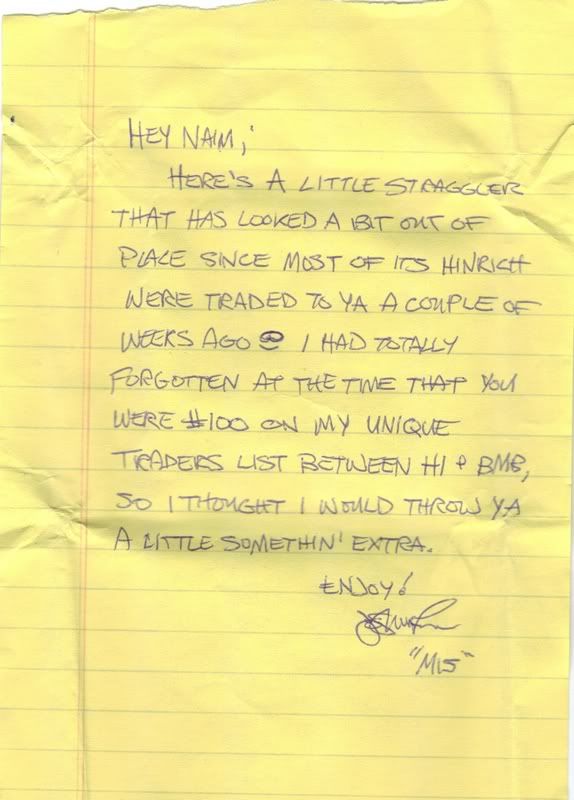 HEY NAIM,
HERE'S A LITTLE STRAGGLER
THAT HAS LOOKED A BIT OUT OF
PLACE SINCE MOST OF ITS HINRICH
WERE TRADED TO YA A COUPLE OF
WEEKS AGO I HAD TOTALLY
FORGOTTEN AT THE TIME THAT YOU
WERE #100 ON MY UNIQUE
TRADERS LIST BETWEEN HI + BMB,
SO I THOUGHT I WOULD THROW YA
A LITTLE SOMETHIN' EXTRA.
ENJOY!
"MIS"